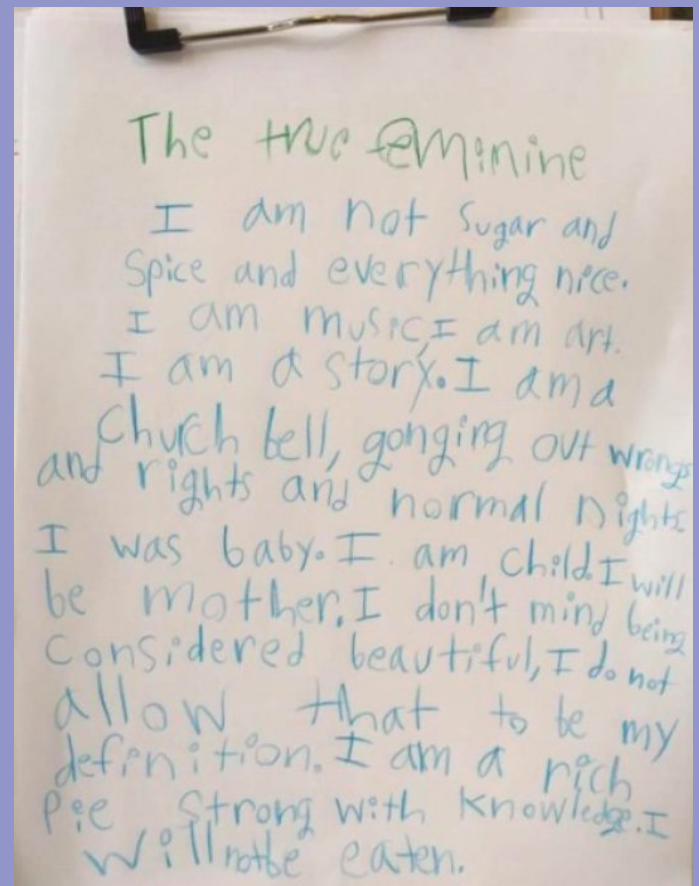 The true feminine
I am not sugar and
spice and everything nice.
I am music, I am art.
I am a story. I am a
church bell, gonging out wrongs
and rights and normal nights.
I was baby. I am child. I will
be mother. I don't mind being
considered beautiful, I do not
allow that to be my
definition. I am a rich
pie strong with knowledge. I
will not be eaten.